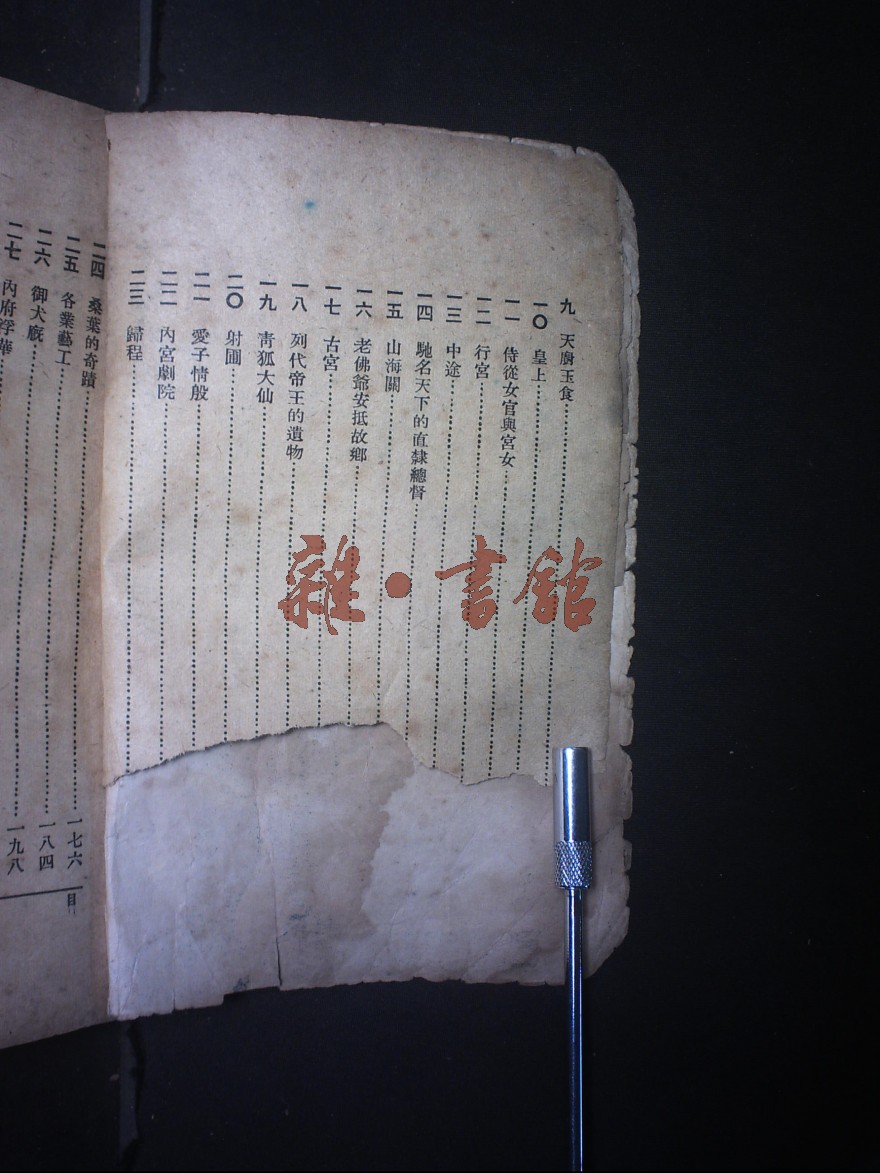 九 天廚玉食
一〇 皇上
一一 侍從女官與宮女
一二 行宮
一三 中途
一四 馳名天下的直隸總督
一五 山海關
一六 老佛爺安抵故鄉
一七 古宮
一八 列代帝王的遺物
一九 青狐大仙
二〇 射圃
二一 愛子情般
二二 內宮劇院
二三 歸程
二四 桑葉的奇蹟
二五 各業藝工 一七六
二六 御犬廄 一八四
二七 內府浮華 一九八
目
雜·書館